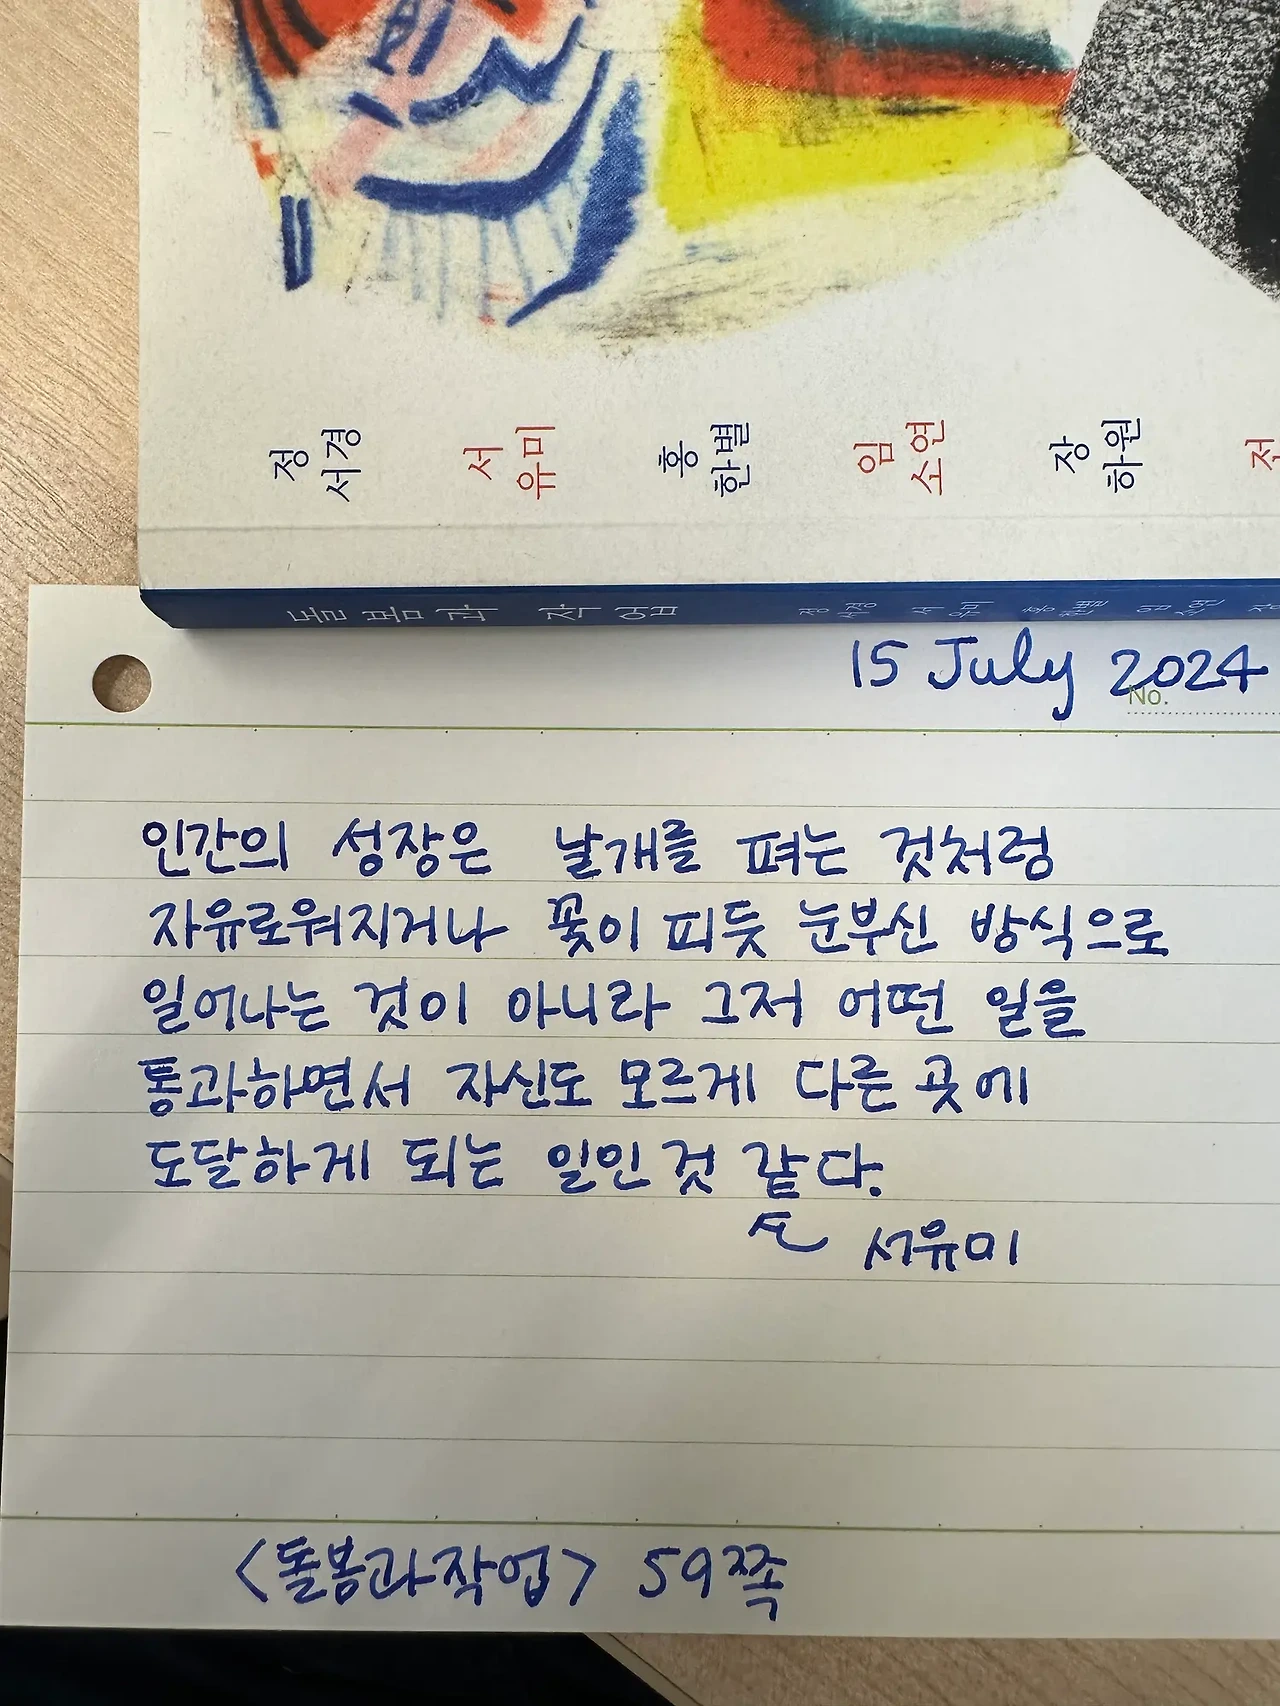 정서경
서유미
홍한별
임소연
장하원
전
돌봄과 작업 정서경 서유미 홍한별 임소연
15 July 2024
No.
인간의 성장은 날개를 펴는 것처럼
자유로워지거나 꽃이 피듯 눈부신 방식으로
일어나는 것이 아니라 그저 어떤 일을
통과하면서 자신도 모르게 다른 곳에
도달하게 되는 일인 것 같다.
서유미
<돌봄과 작업> 59쪽